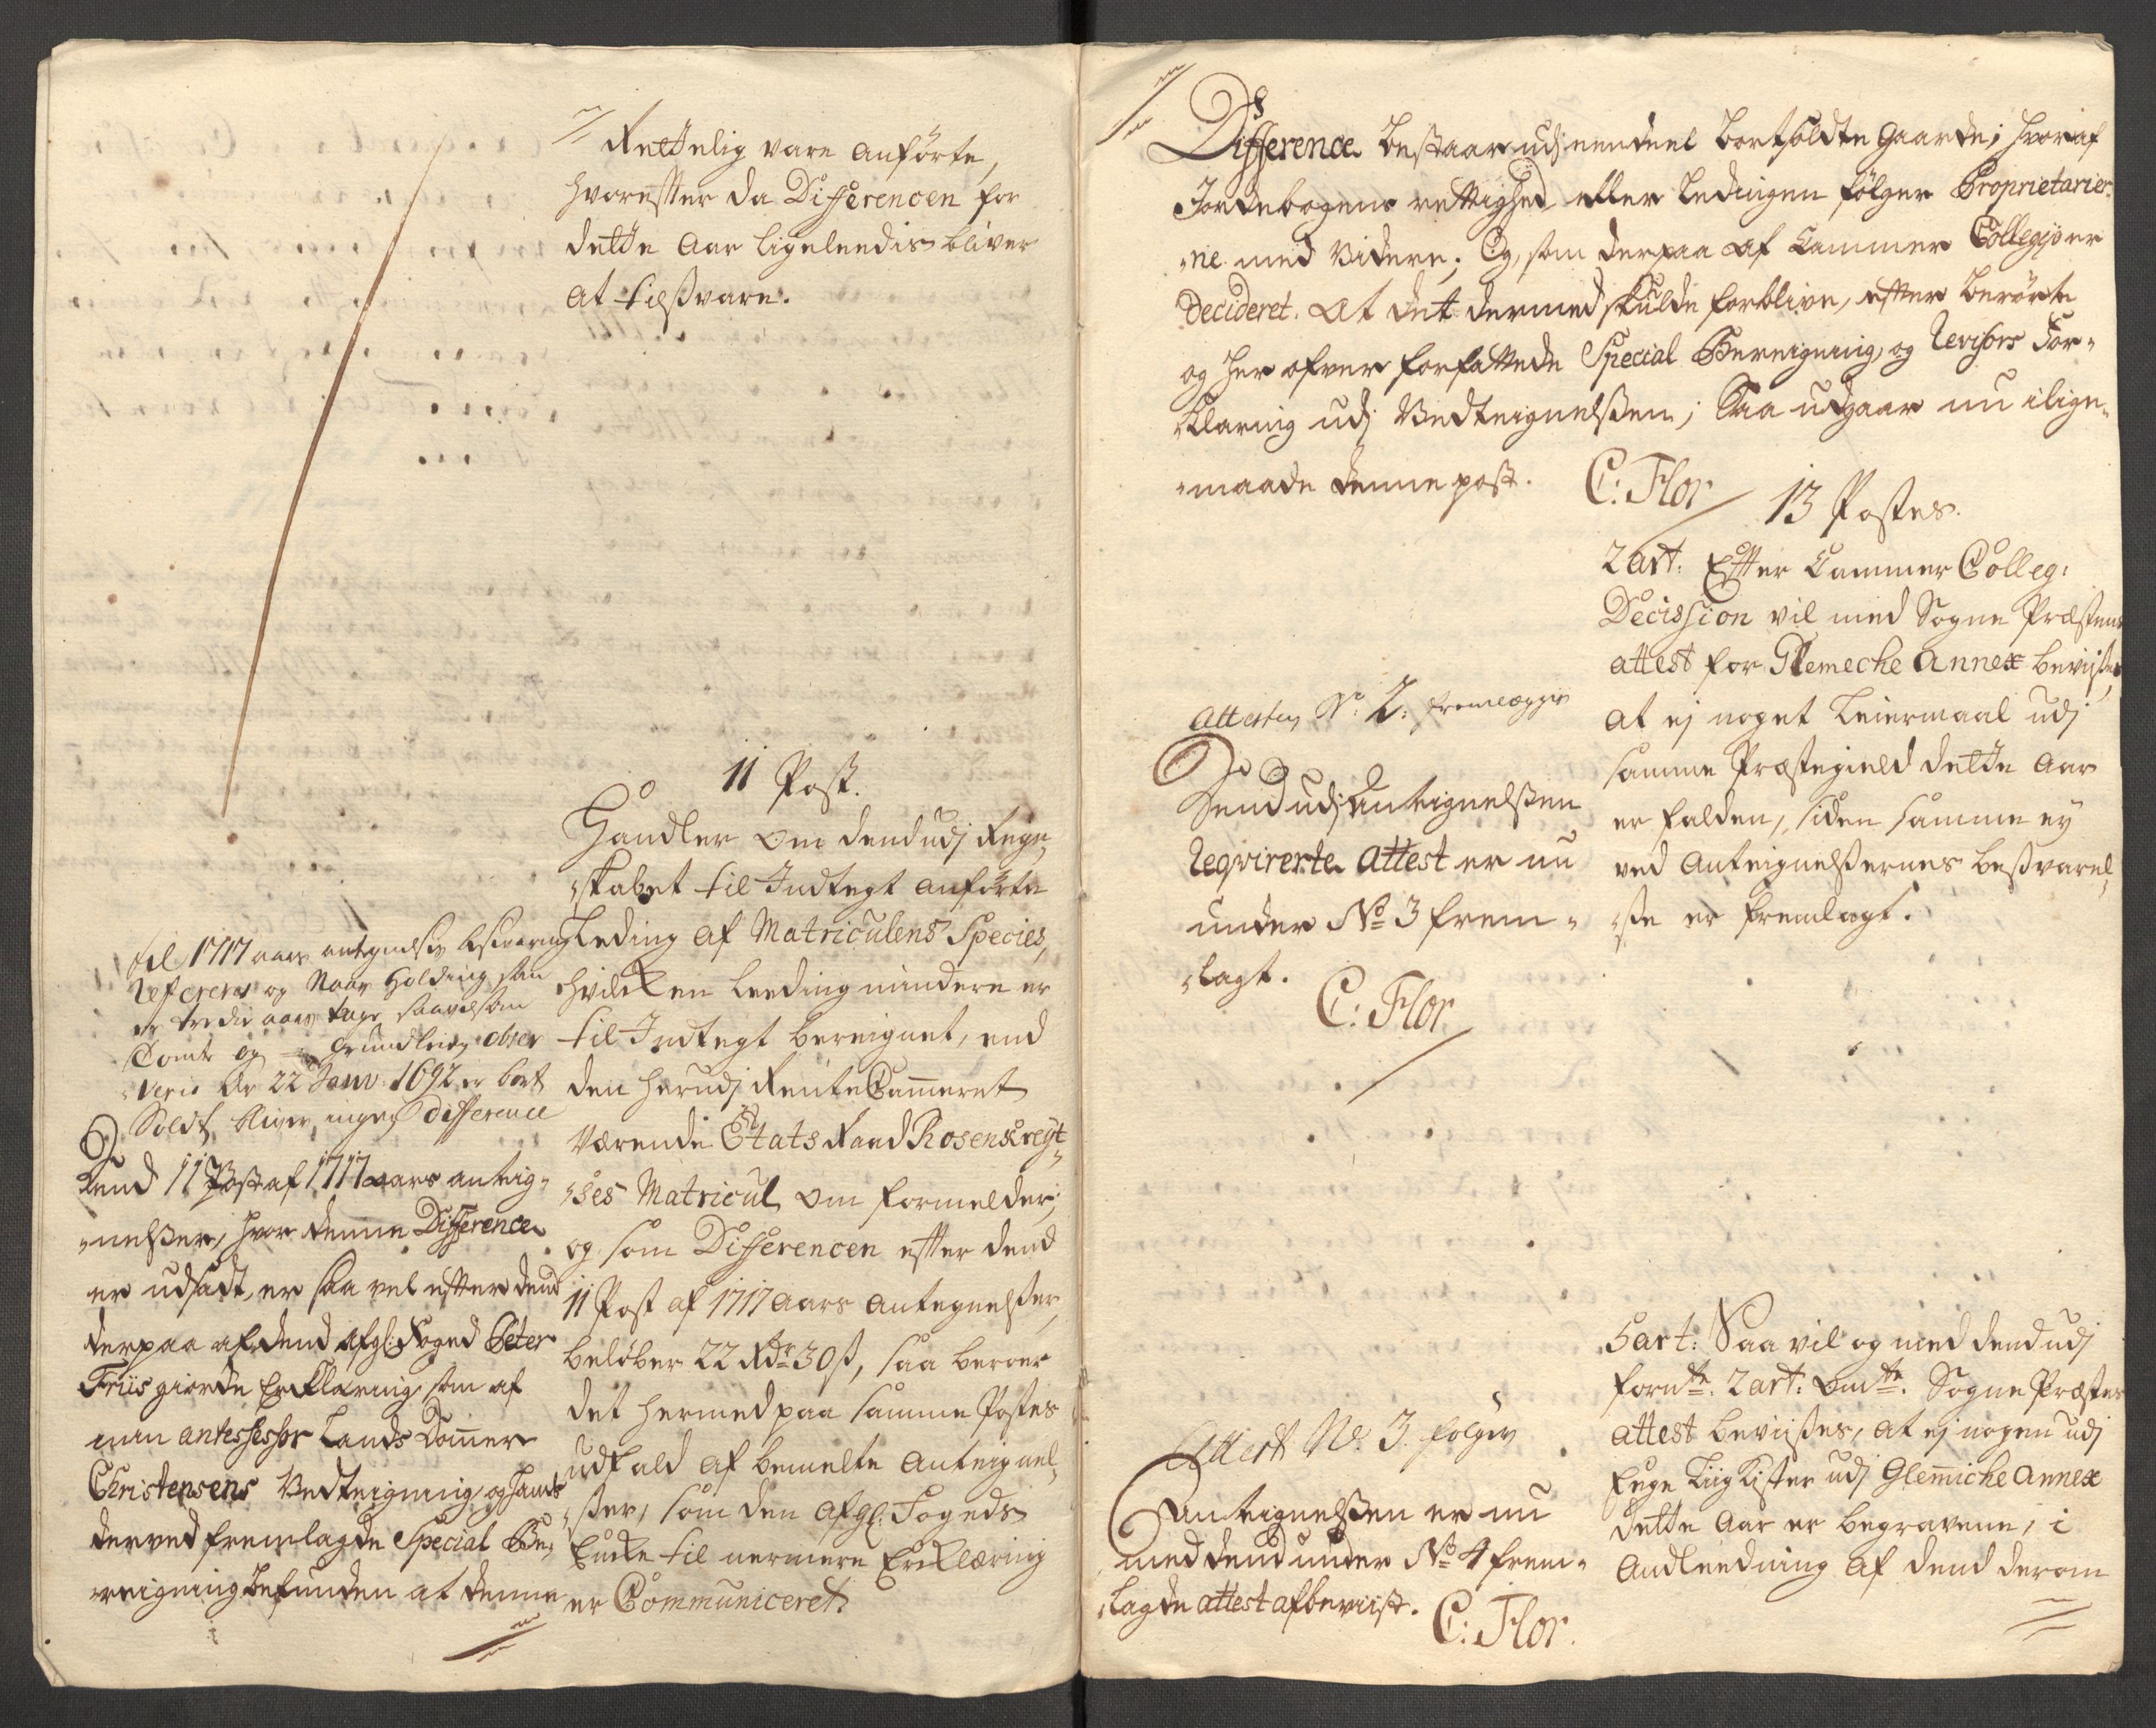 Rettelig vare anførte,
hvorefter da Differencen for
dette Aar ligeleedis bliver
at tilsvare.
11 Post.
Handler om dend udj Regn¬
skabet til Indtegt anførte
Leding af Matriculens Species,
hvilcken leeding mindere er
til Indtegt bereignet, end
den herudj Rente Cammeret
værende Etats Raad Rosenkreyt¬
ses Matricul om formelder,
og som Differencen efter dend
11 Post af 1717 Aars Antegnelser,
beløber 22 Rdr 30 ß, saa beroer
det hermed paa samme Postes
udfald af bemelte Anteignel¬
ser, som den afgl: Fogeds
Encke til nermere Erklæring
er Communiceret.
til 1717 aars antegnelsers besvaring
refereres og Naar Holding som
er tredie aars tage saavelsom
Tomte og grundleje obser
veris Ao 22 Janv: 1692 er bort
Soldt, bliver ingen difference
Dend 11 Post af 1717 aars anteig¬
nelser, hvor denne Difference
er udsadt, er saa vel efter dend
derpaa af dend afgl: Foged Peter
Friis giorde Erklæring, som af
min antesessor Lands Dommer
Christensens Vedteigning og hands
derved fremlagde Special Be¬
reigning befunden at denne
Difference bestaar udj eendeel bortsoldte Gaarde, hvoraf
Jordebogens rettighed eller ledingen følger Proprietarier¬
ne med videre; Og, som derpaa af Cammer Collegio er
Decideret. At det dermed skulde forblive, efter berørte
og her ofver forfattede Special Bereigning, og Revisors For¬
klaring udj Vedteignelsen; Saa udgaar nu i lige¬
maade denne post.
C: Flor
13 Postes.
2 art: Efter Cammer Colleg:
Decission vil med Sogne Præstens
attest for Glemeche Annex bevises,
at ej noget Leiermaal udj
samme Præstegield dette Aar
er falden, siden samme ey
ved Anteignelsernes besvarel¬
se er fremlagt.
Attesten No: 2: fremlegges
Dend udj Anteignelsen
Reqvirerte Attest er nu
under No 3 frem¬
lagt.
C: Flor
5 art: Saa vil og med dend udj
fornte: 2 art: omte: Sogne Præstes
attest bevises, at ej nogen udj
Eege Liig Kister udj Glemiche Annex
dette Aar er begravene, i
Andleedning af dend derom
Attest No: 3. følger
Anteignelsen er nu
med dend under No 4 frem¬
lagde attest afbeviist.
C: Flor.